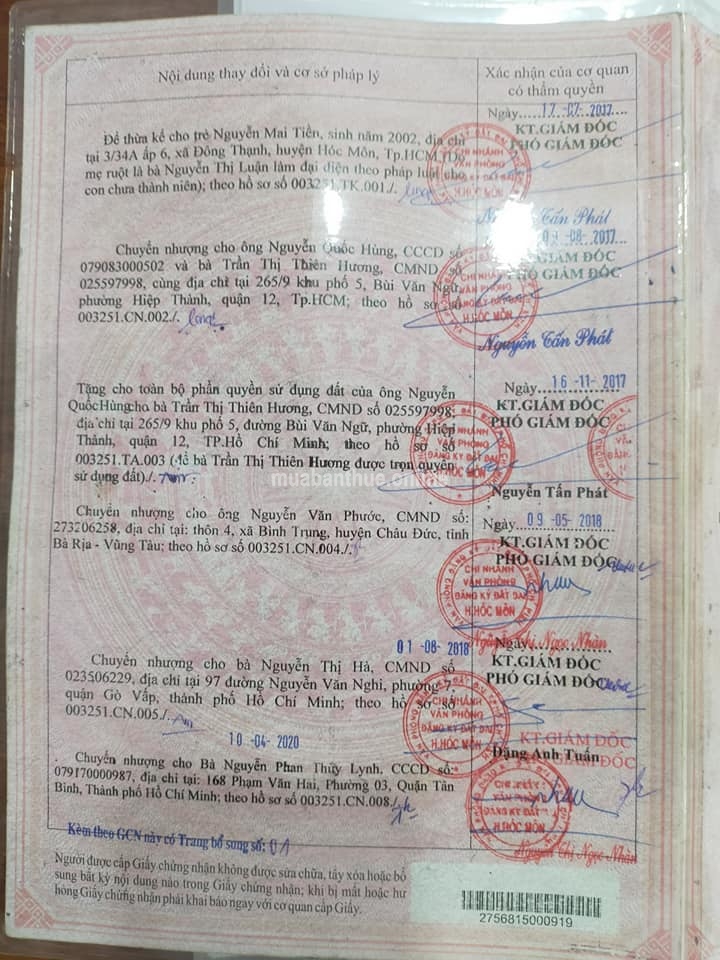 Nội dung thay đổi và cơ sở pháp lý
Xác nhận của cơ quan
có thẩm quyền
Để thừa kế cho trẻ Nguyễn Mai Tiền, sinh năm 2002, địa chỉ
tại 3/34A ấp 6, xã Đông Thạnh, huyện Hóc Môn, Tp.HCM (Do
mẹ ruột là bà Nguyễn Thị Luận làm đại diện theo pháp luật cho
con chưa thành niên); theo hồ sơ số 003251.TK.001./.
Ngày 17-07-2017
KT.GIÁM ĐỐC
PHÓ GIÁM ĐỐC
CHI NHÁNH
VĂN PHÒNG
H.HÓC MÔN
Nguyễn Tấn Phát
Chuyển nhượng cho ông Nguyễn Quốc Hùng, CCCD số
079083000502 và bà Trần Thị Thiên Hương, CMND số
025597998, cùng địa chỉ tại 265/9 khu phố 5, Bùi Văn Ngữ,
phường Hiệp Thành, quận 12, Tp.HCM; theo hồ sơ số
003251.CN.002./.
-08-2017
GIÁM ĐỐC
PHÓ GIÁM ĐỐC
CHI NHÁNH
VĂN PHÒNG
ĐĂNG KÝ ĐẤT ĐAI
H.HÓC MÔN
Nguyễn Tấn Phát
Tặng cho toàn bộ phần quyền sử dụng đất của ông Nguyễn
QuốcHùngcho bà Trần Thị Thiên Hương, CMND số 025597998;
địa chỉ tại 265/9 khu phố 5, đường Bùi Văn Ngữ, phường Hiệp
Thành, quận 12, TP.Hồ Chí Minh; theo hồ sơ số
003251.TA.003 (để bà Trần Thị Thiên Hương được trọn quyền
sử dụng đất)./.
Ngày 16-11-2017
KT.GIÁM ĐỐC
PHÓ GIÁM ĐỐC
CHI NHÁNH
VĂN PHÒNG
ĐĂNG KÝ ĐẤT ĐAI
H.HÓC MÔN
Nguyễn Tấn Phát
muabanthue
Chuyển nhượng cho ông Nguyễn Văn Phước, CMND số:
273206258, địa chỉ tại: thôn 4, xã Bình Trung, huyện Châu Đức, tỉnh
Bà Rịa - Vũng Tàu; theo hồ sơ số 003251.CN.004./.
Ngày 09-05-2018
KT.GIÁM ĐỐC
PHÓ GIÁM ĐỐC
CHI NHÁNH
VĂN PHÒNG
ĐĂNG KÝ ĐẤT ĐAI
H.HÓC MÔN
Nguyễn Thị Ngọc Nhàn
01-08-2018
Ngày
Chuyển nhượng cho bà Nguyễn Thị Hà, CMND số
023506229, địa chỉ tại 97 đường Nguyễn Văn Nghi, phường 7,
quận Gò Vấp, thành phố Hồ Chí Minh; theo hồ sơ số
003251.CN.005./.
KT.GIÁM ĐỐC
PHÓ GIÁM ĐỐC
CHI NHÁNH
VĂN PHÒNG
ĐĂNG KÝ ĐẤT ĐAI
H.HÓC MÔN
Đặng Anh Tuấn
10-04-2020
Chuyển nhượng cho Bà Nguyễn Phan Thùy Lynh. CCCD số:
079170000987, địa chỉ tại: 168 Phạm Văn Hai, Phường 03, Quận Tân
Bình, Thành phố Hồ Chí Minh; theo hồ sơ số 003251.CN.008./.
KT.GIÁM ĐỐC
PHÓ GIÁM ĐỐC
CHI NHÁNH
VĂN PHÒNG
ĐĂNG KÝ ĐẤT ĐAI
H.HÓC MÔN
Nguyễn Thị Ngọc Nhàn
Kèm theo GCN này có Trang bổ sung số: 01
Người được cấp Giấy chứng nhận không được sửa chữa, tẩy xóa hoặc bổ
sung bất kỳ nội dung nào trong Giấy chứng nhận; khi bị mất hoặc hư
hỏng Giấy chứng nhận phải khai báo ngay với cơ quan cấp Giấy.
2756815000919